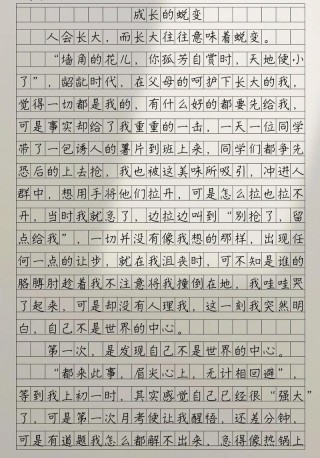 成长的蜕变
人会长大，而长大往往意味着蜕变。
“墙角的花儿，你孤芳自赏时，天地便小
了”，龆龀时代，在父母的呵护下长大的我，
觉得一切都是我的，有什么好的都要先给我，
可是事实却给了我重重的一击，一天一位同学
带了一包诱人的薯片到班上来，同学们都争先
恐后的上去抢，我也被这美味所吸引，冲进人
群中，想用手将他们拉开，可是怎么拉也拉不
开，当时我就急了，边拉边叫到“别抢了，留
点给我”，一切并没有像我想的那样，出现任
何一点的让步，就在我沮丧时，可不知是谁的
胳膊肘趁着我不注意将我撞倒在地，我哇哇哭
了起来，可是却没有人理我，这一刻我突然明
白，自己不是世界的中心。
第一次，是发现自己不是世界的中心。
“都来此事，眉尖心上，无计相回避”，
等到我上初一时，其实感觉自己已经很“强大”
了，可是第一次月考便让我醒悟，还差分钟，
可是有道题我怎么都解不出来，急得像热锅上